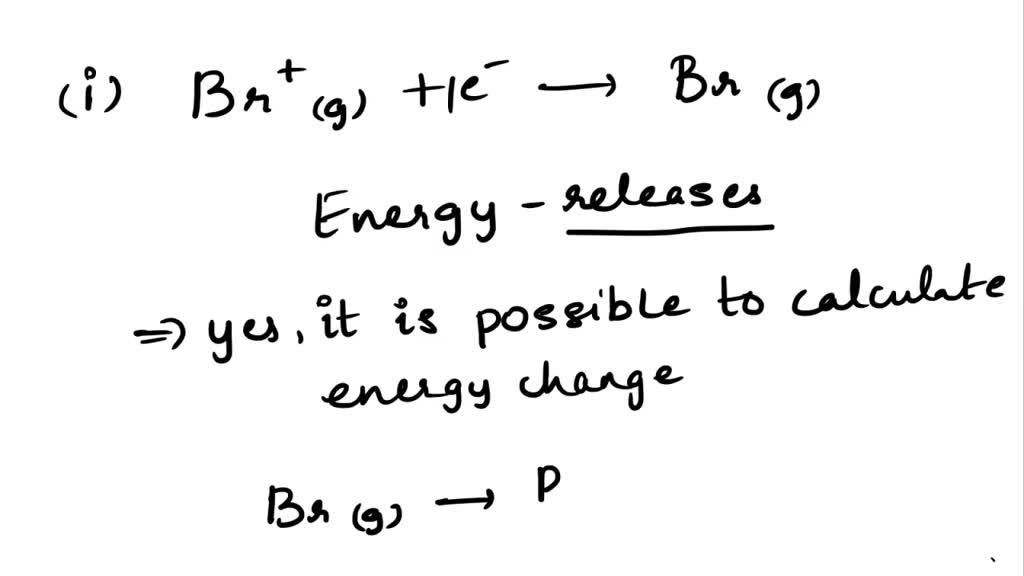 (i) Br⁺(g) + 1e⁻ → Br (g)
Energy - releases
⇒ yes, it is possible to calculate
energy change
Br (g) → P